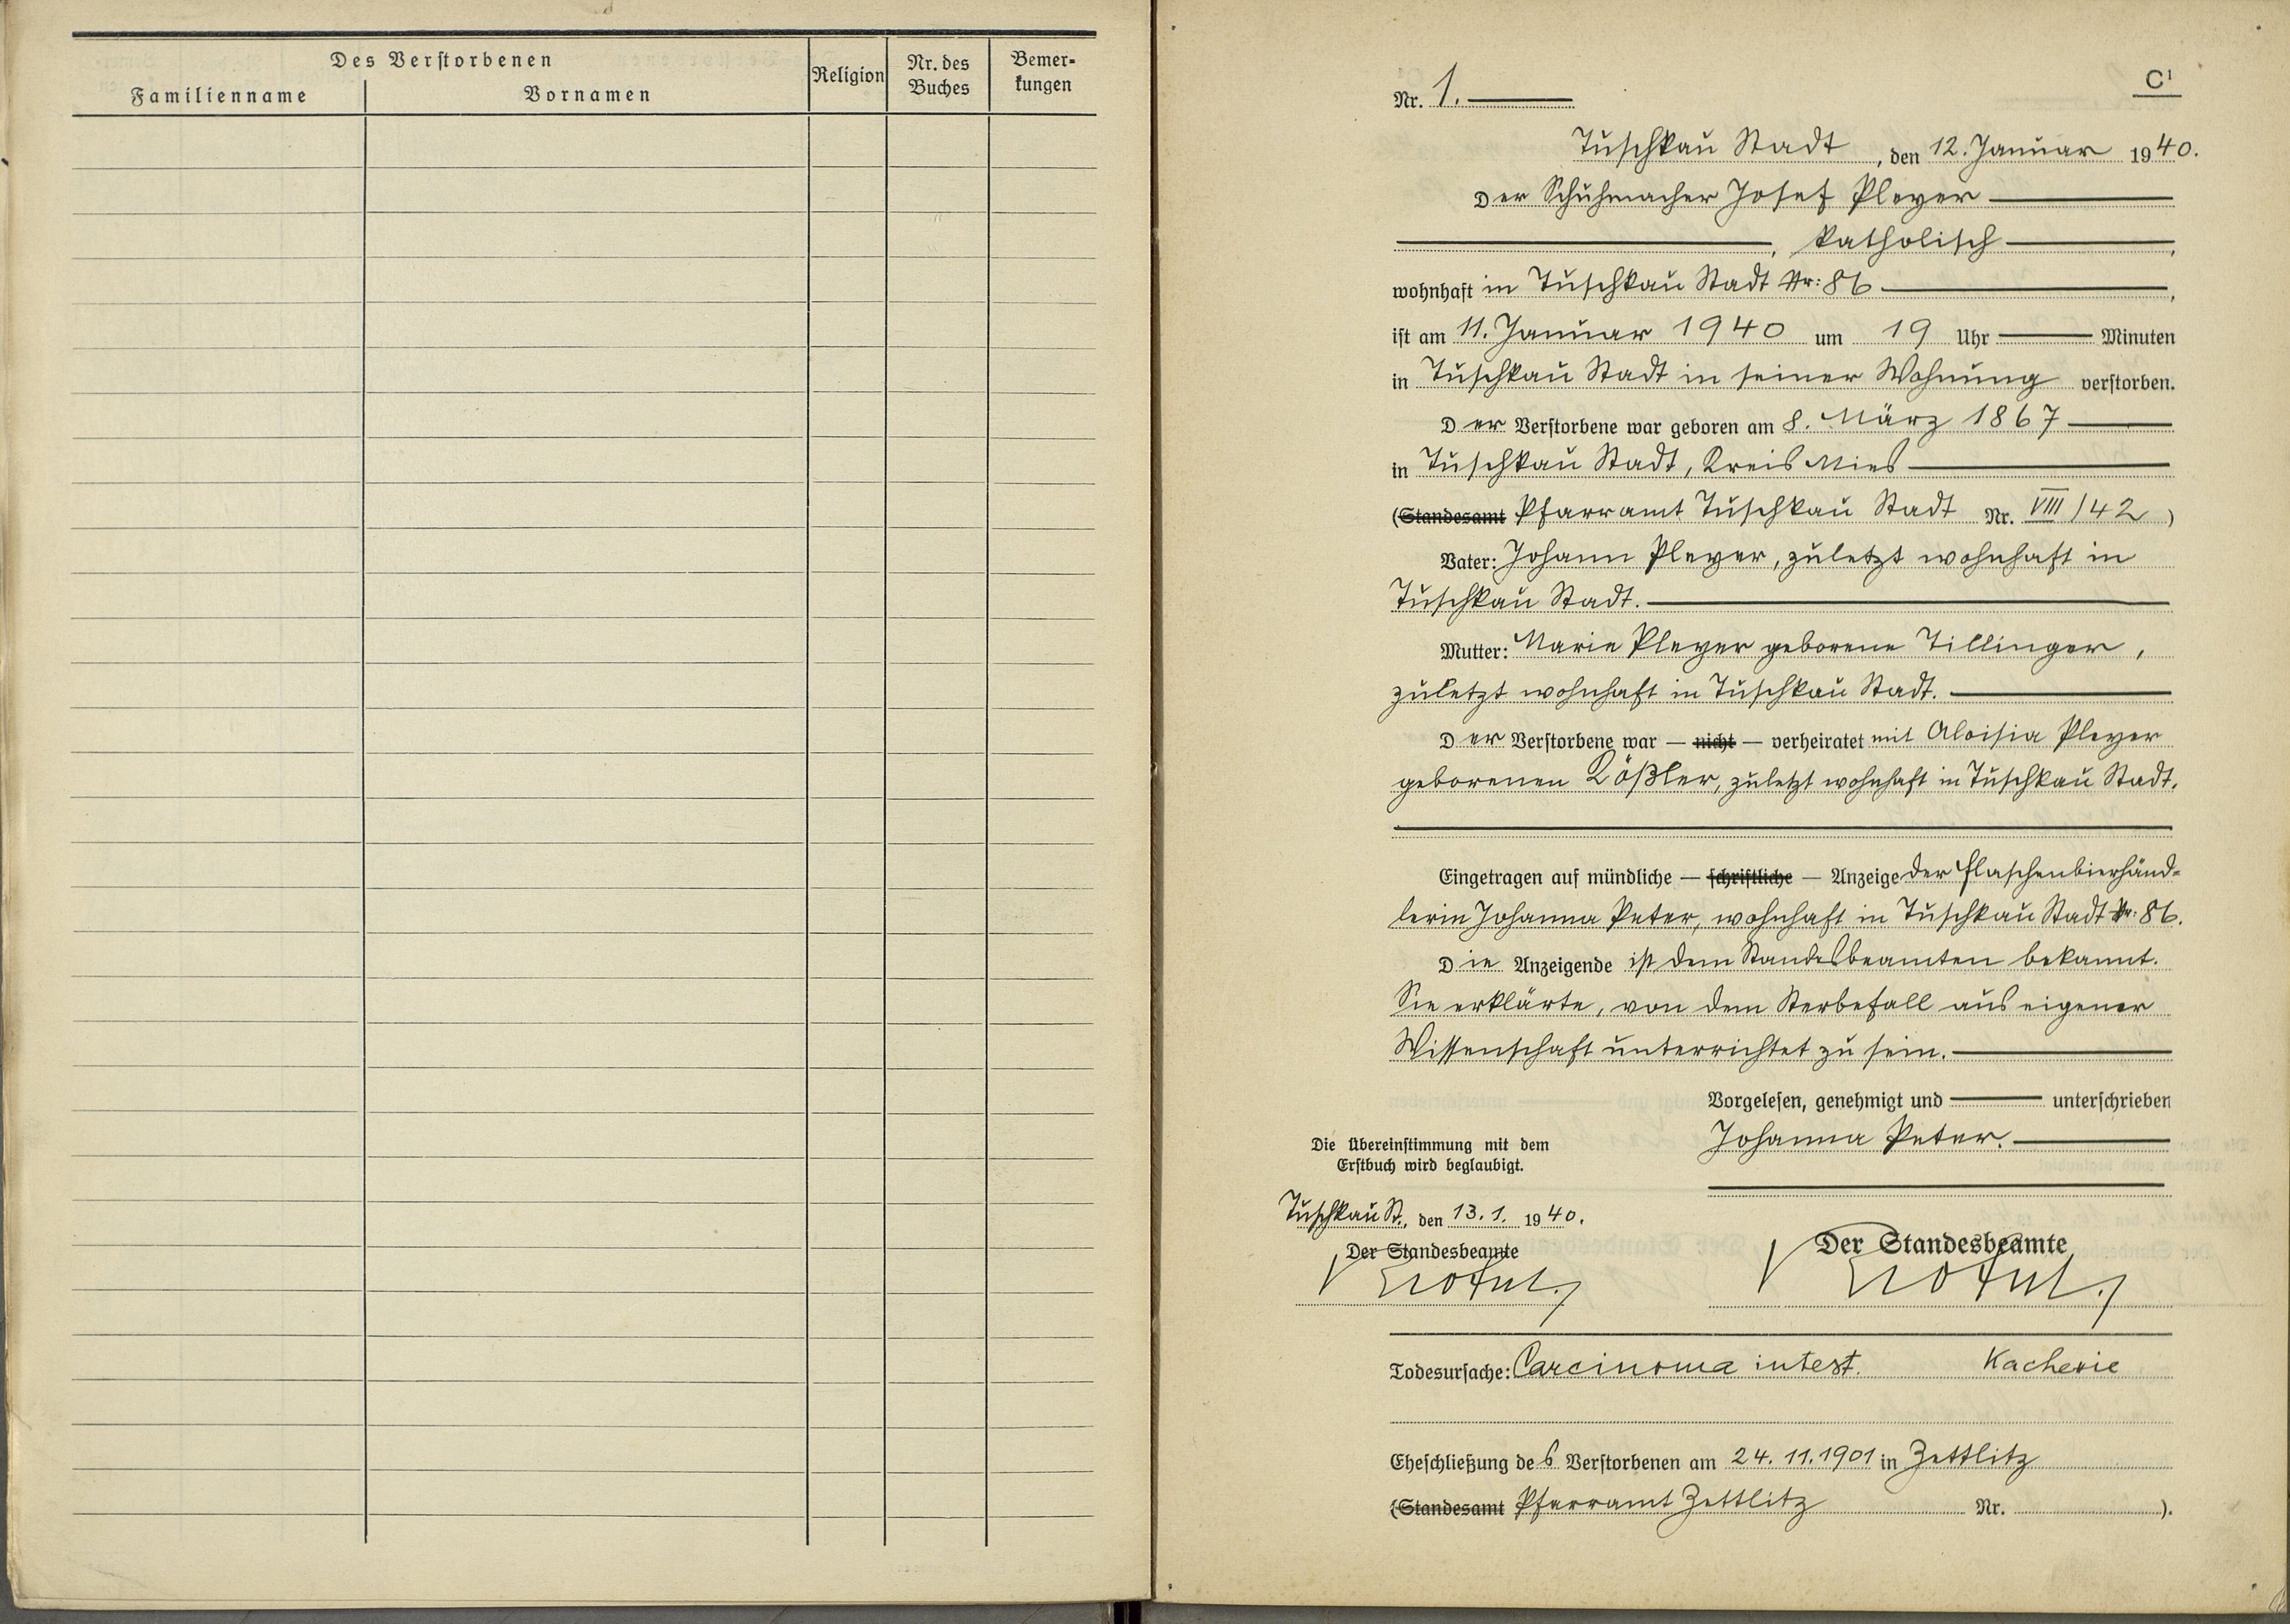 Des Verstorbenen
Familienname
Vornamen
Religion
Nr. des
Buches
Bemer-
kungen
C¹
Nr. 1.
Tuschkau Stadt, den 12. Januar 1940.
Der Schuhmacher Josef Pleyer
, katholisch,
wohnhaft in Tuschkau Stadt Nr: 86,
ist am 11. Januar 1940 um 19 Uhr Minuten
in Tuschkau Stadt in seiner Wohnung verstorben.
Der Verstorbene war geboren am 8. März 1867
in Tuschkau Stadt, Kreis Mies
(Standesamt Pfarramt Tuschkau Stadt Nr. VIII/42)
Vater: Johann Pleyer, zuletzt wohnhaft in
Tuschkau Stadt.
Mutter: Marie Pleyer geborene Tillinger,
zuletzt wohnhaft in Tuschkau Stadt.
Der Verstorbene war — nicht — verheiratet mit Aloisia Pleyer
geborenen Rößler, zuletzt wohnhaft in Tuschkau Stadt.
Eingetragen auf mündliche — schriftliche — Anzeige der Flaschenbierhänd-
lerin Johanna Peter, wohnhaft in Tuschkau Stadt Nr: 86.
Die Anzeigende ist dem Standesbeamten bekannt.
Sie erklärte, von dem Sterbefall aus eigener
Wissenschaft unterrichtet zu sein.
Vorgelesen, genehmigt und unterschrieben
Johanna Peter.
Die Übereinstimmung mit dem
Erstbuch wird beglaubigt.
Tuschkau St., den 13.1. 1940.
Der Standesbeamte
Der Standesbeamte
Todesursache: Carcinoma intest. Kachexie
Eheschließung des Verstorbenen am 24.11.1901 in Zettlitz
(Standesamt Pfarramt Zettlitz Nr. ).